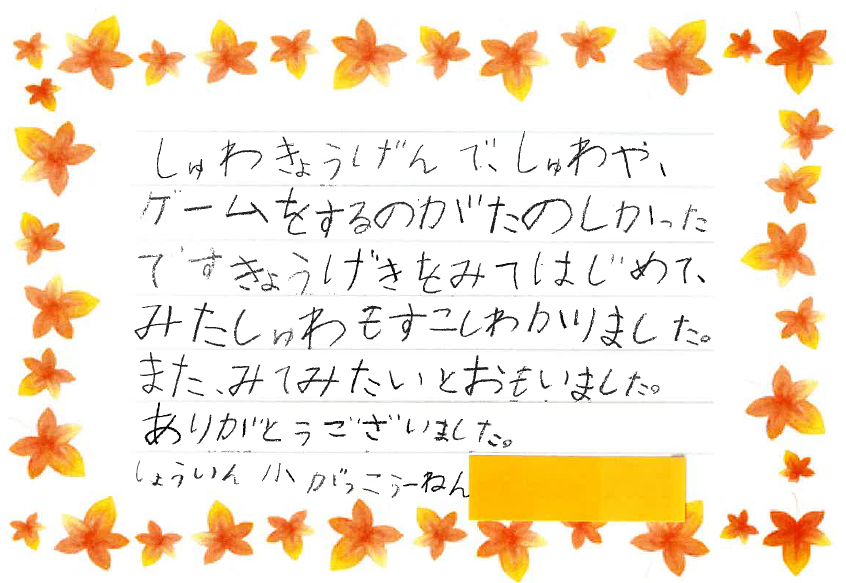 しゅわきょうげんで、しゅわや、
ゲームをするのがたのしかった
ですきょうげきをみてはじめて、
みたしゅわもすこしわかりました。
また、みてみたいとおもいました。
ありがとうございました。
しょういん小がっこう一ねん